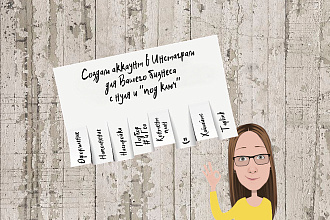 Создам аккаунт в Инстаграм
для Вашего бизнеса
с нуля и "под ключ"
Оформление
Наполнение
Настройка
Подбор
#Тегов
Контент
план
Хайлайтс
Таргет